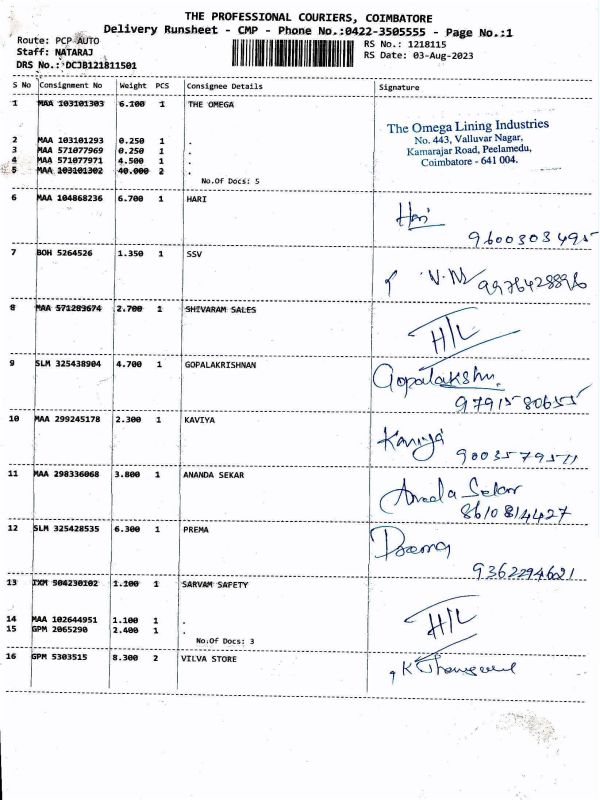 THE PROFESSIONAL COURIERS, COIMBATORE
Delivery Runsheet - CMP - Phone No.:0422-3505555 - Page No.:1
Route: PCP AUTO
Staff: NATARAJ
DRS No.: DCJB121811501
RS No.: 1218115
RS Date: 03-Aug-2023
S No Consignment No Weight PCS Consignee Details Signature
1 MAA 103101303 6.100 1 THE OMEGA
2 MAA 103101293 0.250 1 .
3 MAA 571077969 0.250 1 .
4 MAA 571077971 4.500 1 .
5 MAA 103101302 40.000 2 .
No.Of Docs: 5
The Omega Lining Industries
No. 443, Valluvar Nagar,
Kamarajar Road, Peelamedu,
Coimbatore - 641 004.
6 MAA 104868236 6.700 1 HARI
Hari
9600303495
7 BOH 5264526 1.350 1 SSV
9976428896
8 MAA 571283674 2.700 1 SHIVARAM SALES
H/L
9 SLM 325438904 4.700 1 GOPALAKRISHNAN
9791580655
10 MAA 299245178 2.300 1 KAVIYA
Kaviya
9003579511
11 MAA 298336068 3.800 1 ANANDA SEKAR
8610814427
12 SLM 325428535 6.300 1 PREMA
Prema
9362294621
13 IXM 504230102 1.100 1 SARVAM SAFETY
14 MAA 102644951 1.100 1 .
15 GPM 2065290 2.400 1 .
No.Of Docs: 3
H/L
16 GPM 5303515 8.300 2 VILVA STORE